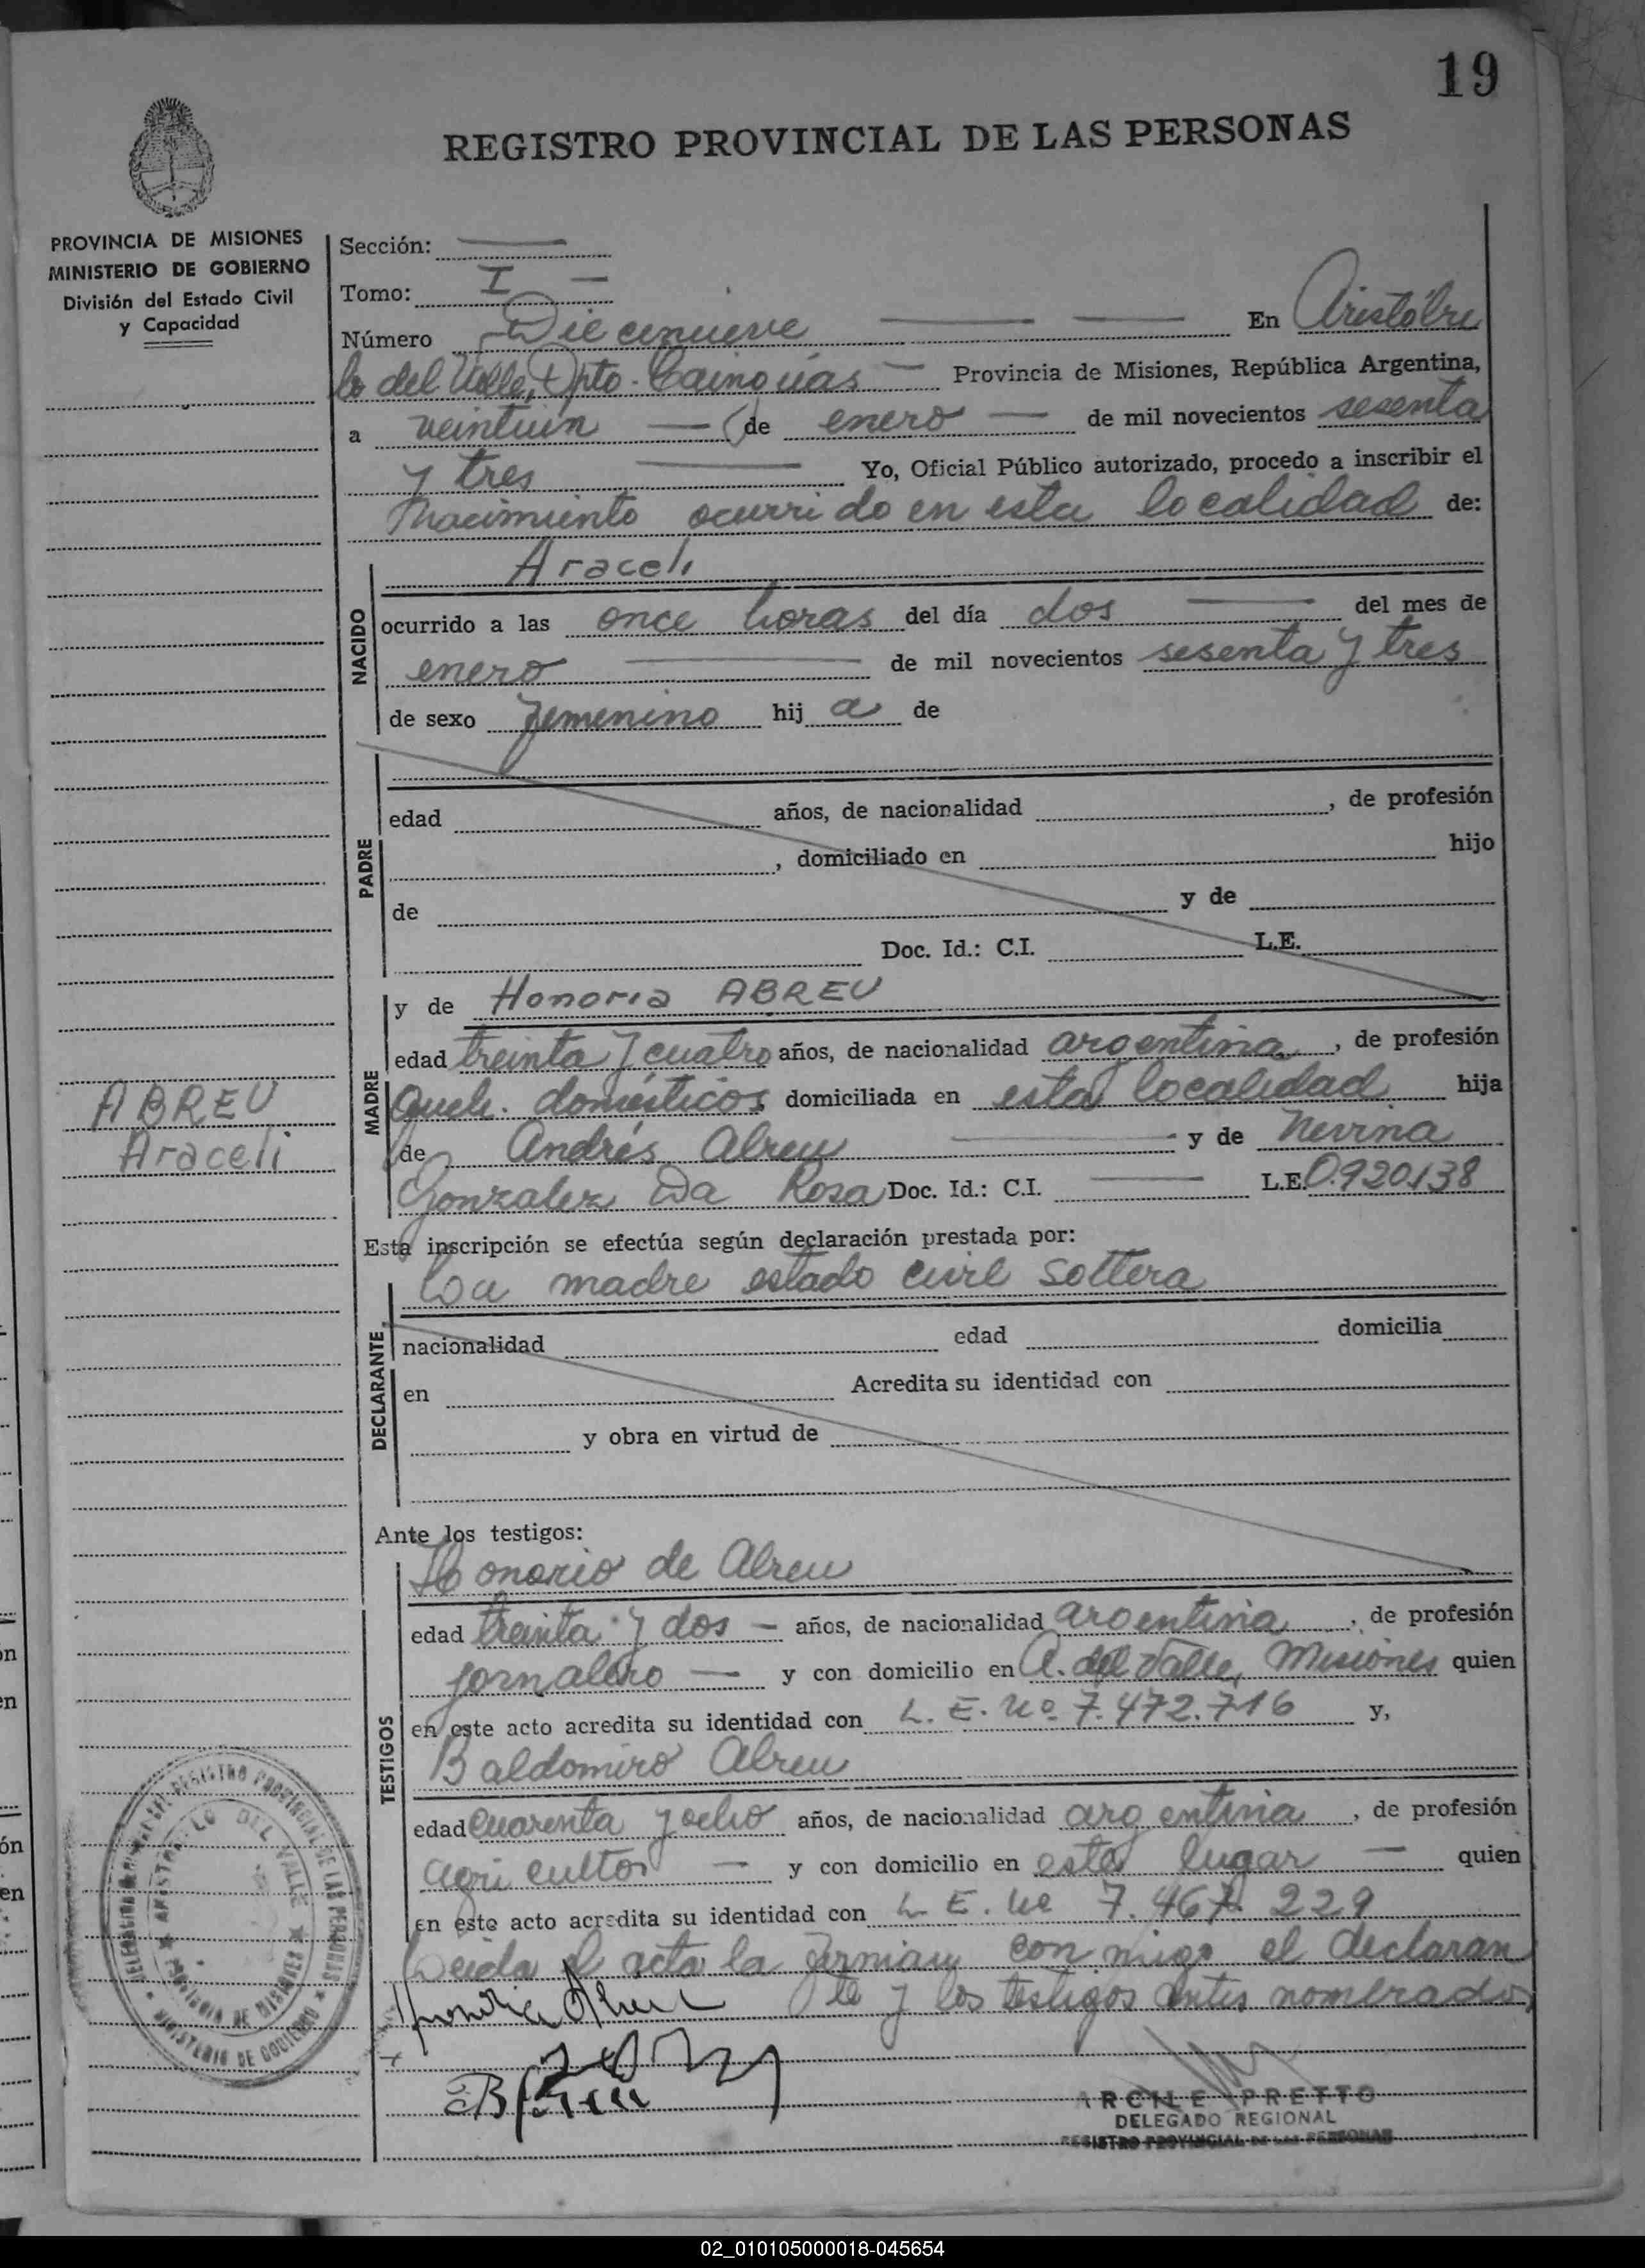 19
REGISTRO PROVINCIAL DE LAS PERSONAS
PROVINCIA DE MISIONES
MINISTERIO DE GOBIERNO
División del Estado Civil
y Capacidad
Sección:
Tomo: I
Número Diecinueve En Aristóbu
lo del Valle, Dpto. Cainguás Provincia de Misiones, República Argentina,
a veintiún de enero de mil novecientos sesenta
y tres Yo, Oficial Público autorizado, procedo a inscribir el
Nacimiento ocurrido en esta localidad de:
NACIDO
Araceli
ocurrido a las once horas del día dos del mes de
enero de mil novecientos sesenta y tres
de sexo femenino hij a de
PADRE
edad años, de nacionalidad , de profesión
, domiciliado en hijo
de y de
Doc. Id.: C.I. L.E.
MADRE
y de Honoria ABREU
edad treinta y cuatro años, de nacionalidad argentina , de profesión
Queh. domésticos domiciliada en esta localidad hija
de Andrés Abreu y de
Gonzalez Da Rosa Doc. Id.: C.I. L.E. 0.920.138
ABREU
Araceli
Esta inscripción se efectúa según declaración prestada por:
DECLARANTE
La madre estado civil soltera
nacionalidad edad domicilia
en Acredita su identidad con
y obra en virtud de
Ante los testigos:
TESTIGOS
Honorio de Abreu
edad treinta y dos años, de nacionalidad argentina , de profesión
jornalero y con domicilio en A. del Valle, Misiones quien
en este acto acredita su identidad con L. E. Nº 7.472.716 y,
Baldomiro Abreu
edad cuarenta y ocho años, de nacionalidad argentina , de profesión
agricultor y con domicilio en este lugar quien
en este acto acredita su identidad con L. E. Nº 7.467.229
Leída el acta la firman con migo el declaran
te y los testigos antes nombrados
Honoria Abreu
DEL REGISTRO PROVINCIAL DE LAS PERSONAS
MINISTERIO DE GOBIERNO
ARISTOBULO DEL VALLE
PROVINCIA DE MISIONES
ARCILE PRETTO
DELEGADO REGIONAL
REGISTRO PROVINCIAL DE LAS PERSONAS
02_010105000018-045654